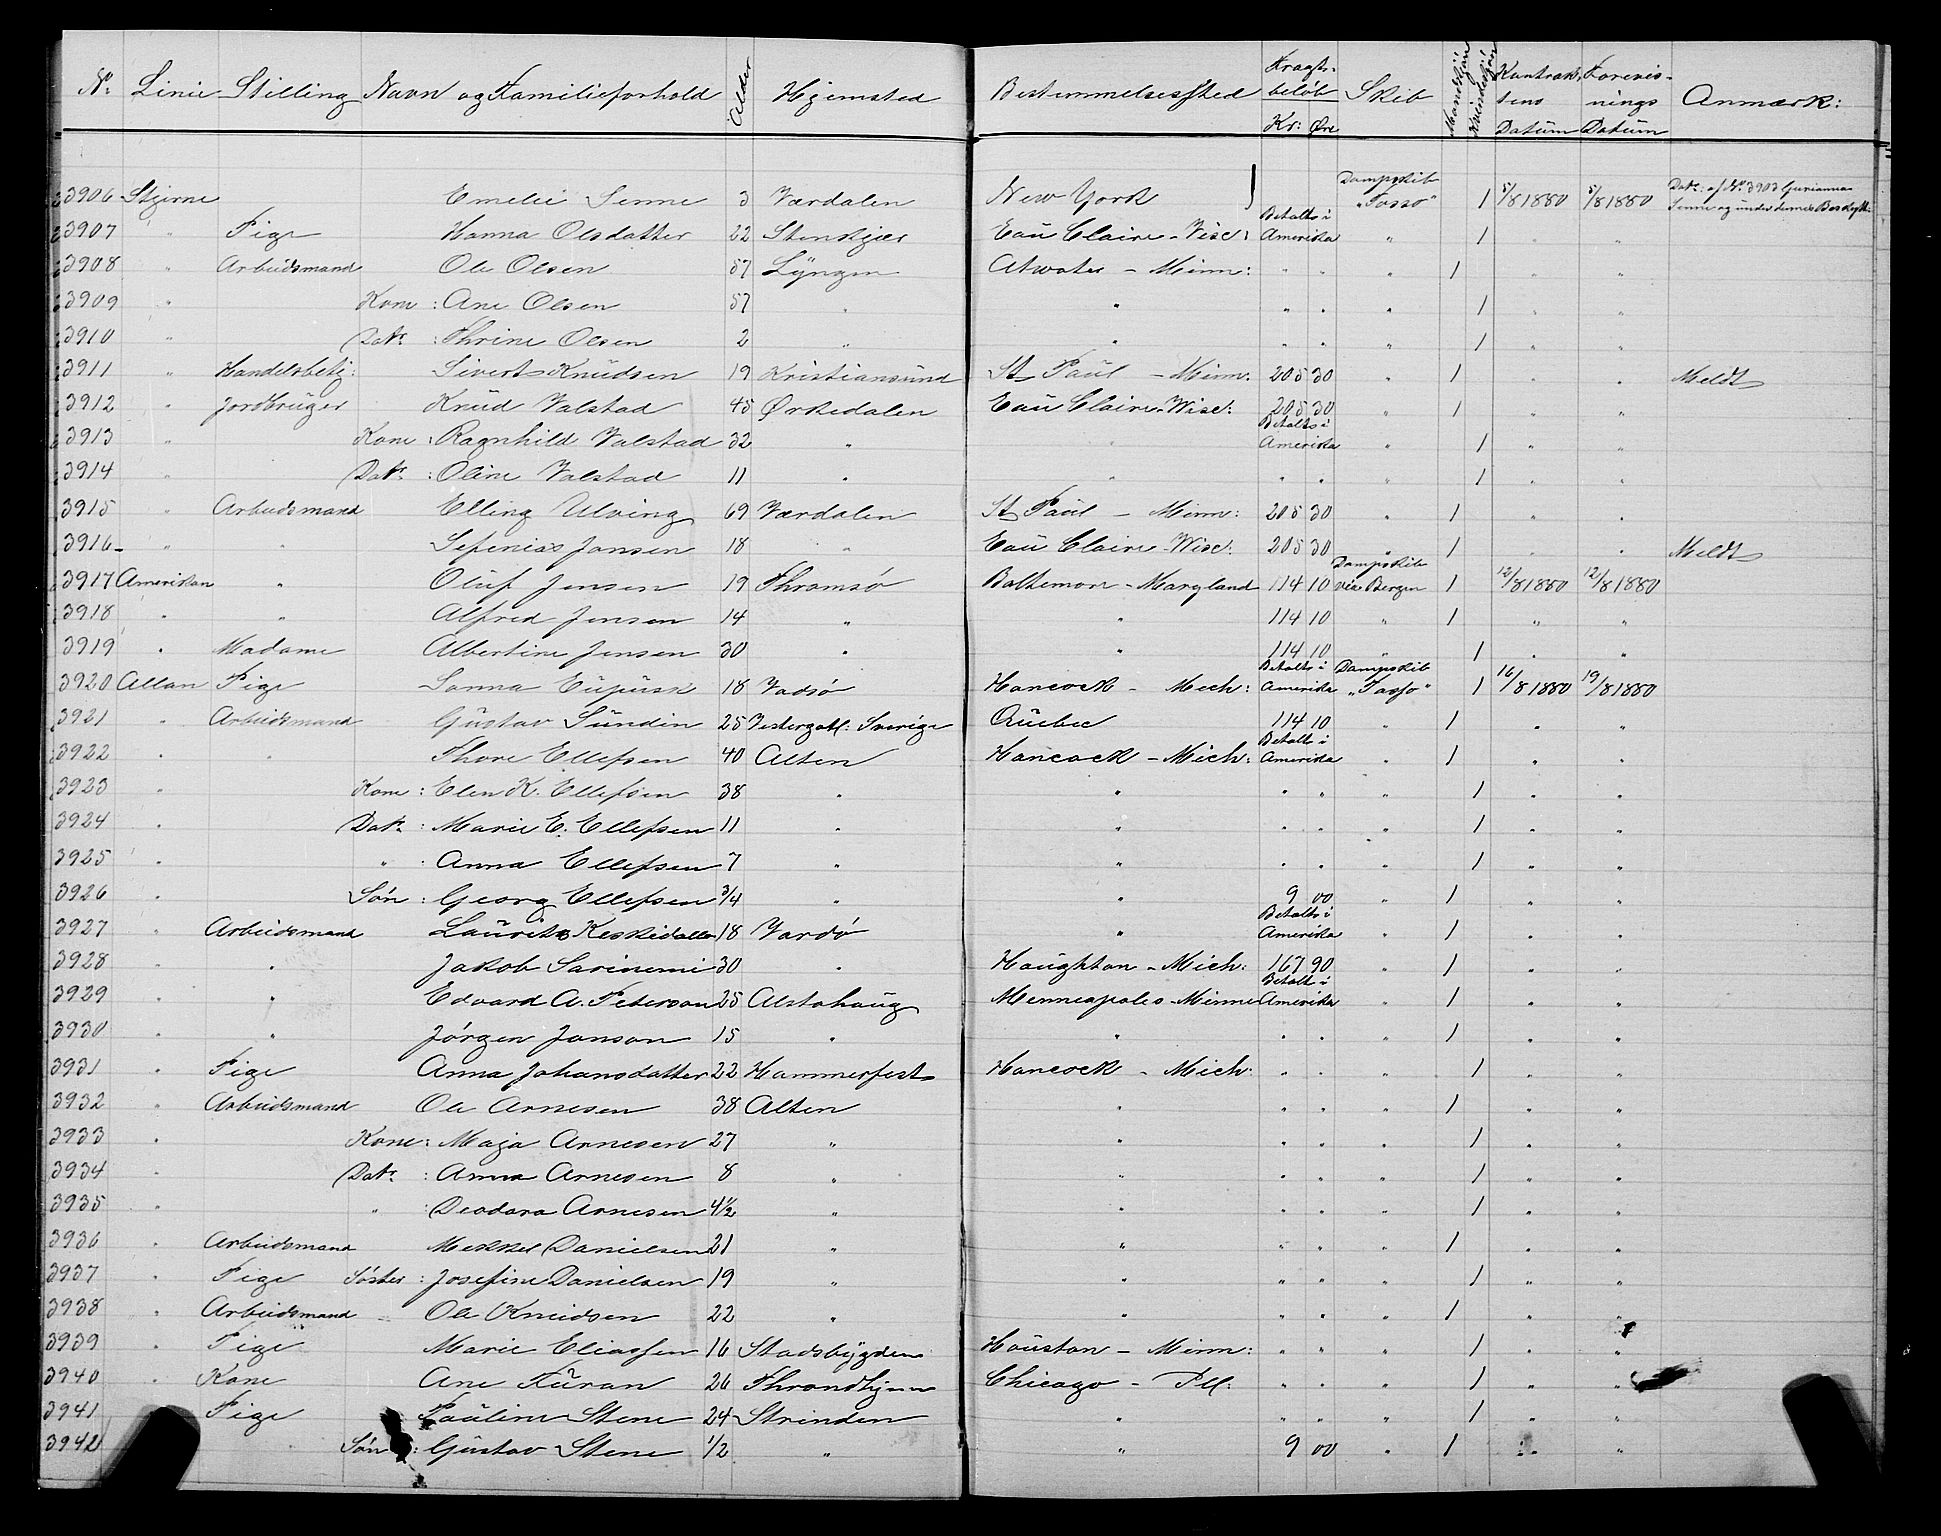 No: Linie Stilling Navn og Familieforhold Alder Hjemsted Bestemmelsessted Fragtbeløb Kr: Øre Skib Mandkjön Kvindekjön Kontraktens Datum Forevisnings Datum Anmærk:
3906 Stjerne Emelie Senne 3 Værdalen New York Dampskib "Tasso" 1 5/8 1880 5/8 1880 Datr: af No 3903 Gurianna Senne og under dennes Beskyt:
3907 " Pige Hanna Olsdatter 22 Stenkjær Eau Claire - Visc: Betalts i Amerika " 1 " "
3908 " Arbeidsmand Ole Olsen 57 Lyngen Atwater - Minn: " " " 1 " "
3909 " Kone: Ane Olsen 57 " " " " " 1 " "
3910 " Datr: Thrine Olsen 2 " " " " " 1 " "
3911 " Handelsbetj: Sivert Knudsen 19 Kristiansund St Paul - Minn. 205 30 " 1 " " Meldt
3912 " Jordbruger Knud Valstad 45 Ørkedalen Eau Claire - Wisc: 205 30 " 1 " "
3913 " Kone: Ragnhild Valstad 32 " " Betalts i Amerika " 1 " "
3914 " Datr: Oline Valstad 11 " " " " " 1 " "
3915 " Arbeidsmand Elling Ulving 69 Værdalen St Paul - Minn: 205 30 " 1 " "
3916 " " Sefenias Jansen 18 " Eau Claire - Wisc: 205 30 " 1 " " Meldt
3917 Amerikan " Oluf Jensen 19 Thromsø Baltemore - Maryland 114 10 Dampskib via Bergen 1 12/8 1880 12/8 1880
3918 " " Alfred Jensen 14 " " 114 10 " 1 " "
3919 " Madame Albertine Jensen 30 " " 114 10 " 1 " "
3920 Allan Pige Sanna 18 Vadsø Hancock - Mich: Betalts i Amerika Dampskib "Tasso" 1 16/8 1880 19/8 1880
3921 " Arbeidsmand Gustav Sundin 25 Vestergotl: Sverige Quebec 114 10 " 1 " "
3922 " " Thore Ellefsen 40 Alten Hancock - Mich: Betalts i Amerika " 1 " "
3923 " Kone: Elen K. Ellefsen 38 " " " " " 1 " "
3924 " Datr: Marie E. Ellefsen 11 " " " " " 1 " "
3925 " ": Anna Ellefsen 7 " " " " " 1 " "
3926 " Søn: Georg Ellefsen 3/4 " " 9 00 " 1 " "
3927 " Arbeidsmand Lauritz 18 Vardø " Betalts i Amerika " 1 " "
3928 " " Jakob Sarinemi 30 " Haughton - Mich: 167 90 " 1 " "
3929 " " Edvard A. Peterson 25 Alstahaug Menneapoles - Minne Betalt i Amerika " 1 " "
3930 " " Jørgen Janson 15 " " " " " 1 " "
3931 " Pige Anna Johansdatter 22 Hammerfest Hancock - Mich: " " " 1 " "
3932 " Arbeidsmand Ole Arnesen 38 Alten " " " " 1 " "
3933 " Kone: Maja Arnesen 27 " " " " " 1 " "
3934 " Datr: Anna Arnesen 8 " " " " " 1 " "
3935 " ": Deodara Arnesen 4 1/2 " " " " " 1 " "
3936 " Arbeidsmand Mekkel Danielsen 21 " " " " " 1 " "
3937 " Pige Søster: Josefine Danielsen 19 " " " " " 1 " "
3938 " Arbeidsmand Ole Knudsen 22 " " " " " 1 " "
3939 " Pige Marie Eliassen 16 Stadsbygden Houston - Minn: " " " 1 " "
3940 " Kone Ane Furan 26 Throndhjem Chicago - Ill: " " " 1 " "
3941 " Pige Pauline Stene 24 Strinden " " " " 1 " "
3942 " Søn: Gustav Stene 1/2 " " 9 00 " 1 " "